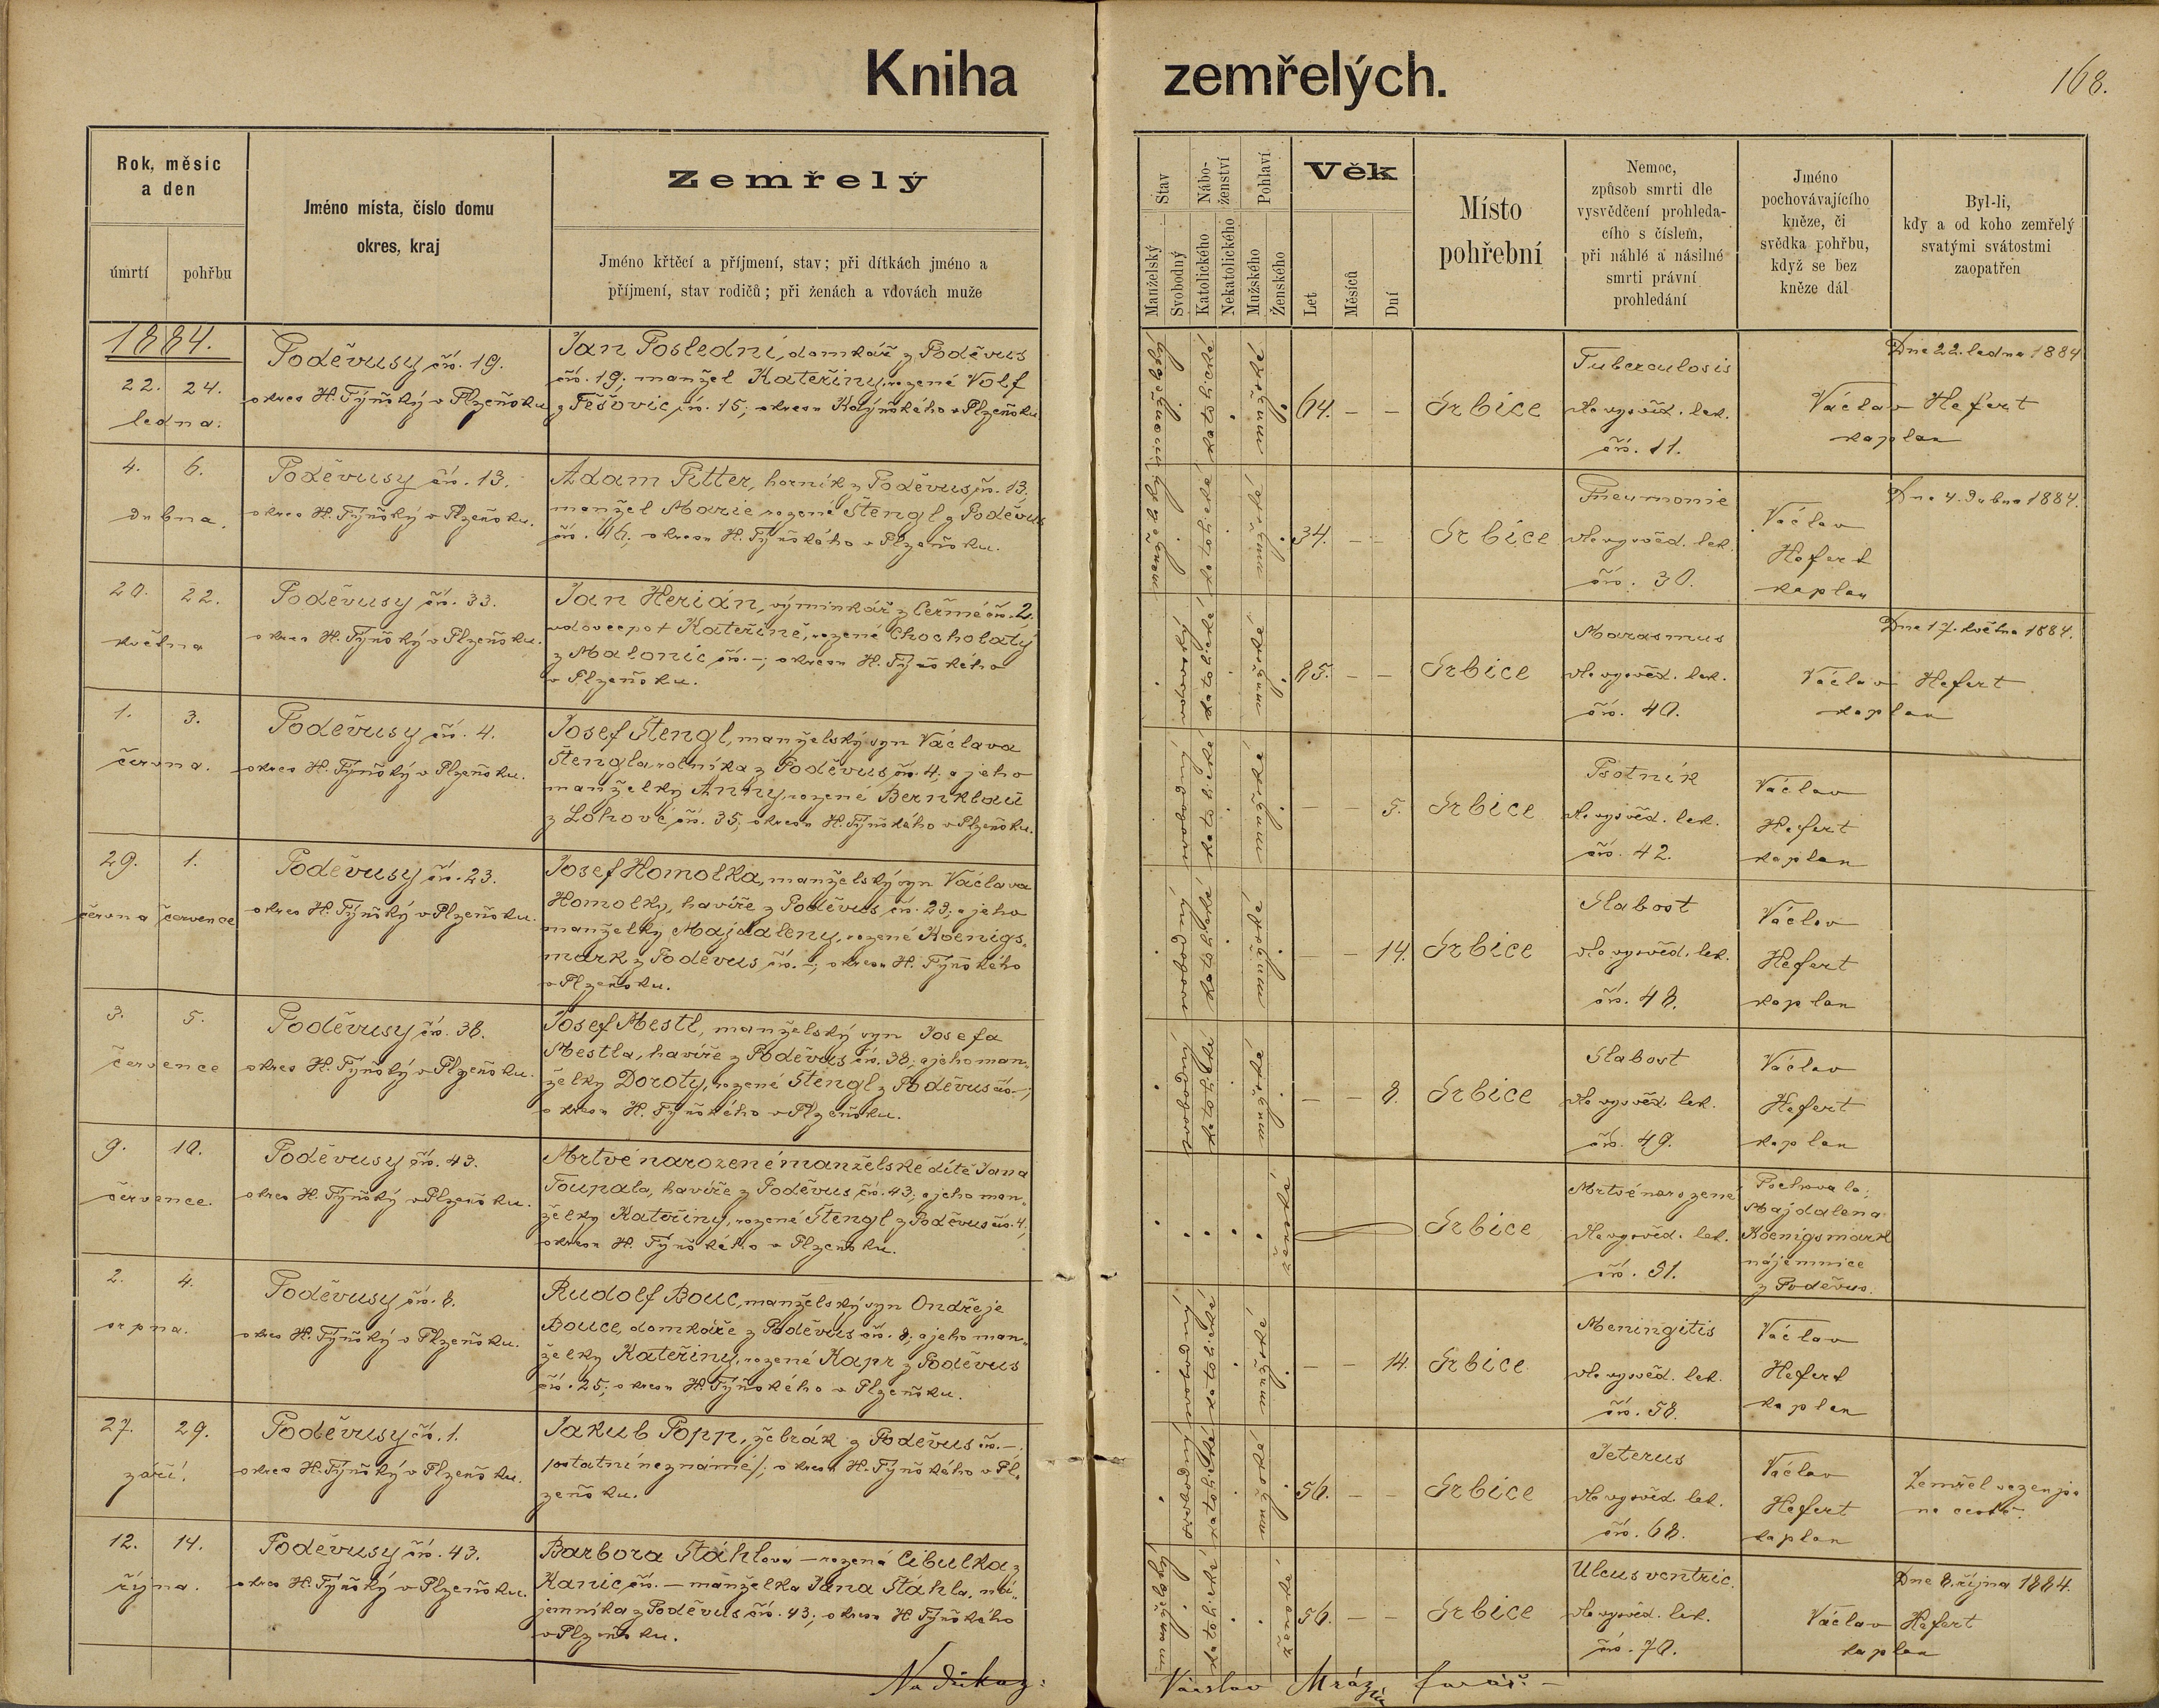 Kniha zemřelých.
168.
Rok, měsíc
a den
úmrtí
pohřbu
Jméno místa, číslo domu
okres, kraj
Zemřelý
Jméno křtěcí a příjmení, stav; při dítkách jméno a
příjmení, stav rodičů; při ženách a vdovách muže
Stav
Manželský
Svobodný
Nábo-
ženství
Katolického
Nekatolického
Pohlaví
Mužského
Ženského
Věk
Let
Měsíců
Dní
Místo
pohřební
Nemoc,
způsob smrti dle
vysvědčení prohleda-
cího s číslem,
při náhlé a násilné
smrti právní
prohledání
Jméno
pochovávajícího
kněze, či
svědka pohřbu,
když se bez
kněze dál
Byl-li,
kdy a od koho zemřelý
svatými svátostmi
zaopatřen
1884.
22. 24.
ledna.
Poděvusy čís. 19.
okres H. Týnský v Plzeňsku
Jan Poslední, domkář z Poděvus
čís. 19; manžel Kateřiny, rozené Volf
z Těšovic čís. 15; okresu H. Týnského v Plzeňsku.
manželský
katolické
mužské
64. – –
Srbice
Tuberculosis
dle vysvěd. lek.
čís. 11.
Dne 22. ledna 1884
Václav Hefert
kaplan
4. 6.
dubna.
Poděvusy čís. 13.
okres H. Týnský v Plzeňsku.
Adam Pitter, horník z Poděvus čís. 13,
manžel Marie rozené Štengl z Poděvus
čís. 16; okresu H. Týnského v Plzeňsku.
manželský
katolické
mužské
34. – –
Srbice
Pneumonie
dle vysvěd. lek.
čís. 30.
Václav
Hefert
kaplan
Dne 4. dubna 1884.
20. 22.
května
Poděvusy čís. 33.
okres H. Týnský v Plzeňsku.
Jan Herián, výminkář z Čermé čís. 2,
vdovec po † Kateřině, rozené Chocholatý
z Malonic čís. –; okresu H. Týnského
v Plzeňsku.
katolické
mužské
85. – –
Srbice
Marasmus
dle vysvěd. lek.
čís. 40.
Dne 17. května 1884.
Václav Hefert
kaplan
1. 3.
června.
Poděvusy čís. 4.
okres H. Týnský v Plzeňsku.
Josef Štengl, manželský syn Václava
Štengla, rolníka z Poděvus čís. 4; a jeho
manželky Anny, rozené Bernklau
z Lohové čís. 35; okresu H. Týnského v Plzeňsku.
svobodný
katolické
mužské
– – 5.
Srbice
Psotník
dle vysvěd. lek.
čís. 42.
Václav
Hefert
kaplan
29. 1.
června července
Poděvusy čís. 23.
okres H. Týnský v Plzeňsku.
Josef Homolka, manželský syn Václava
Homolky, havíře z Poděvus čís. 23; a jeho
manželky Majdaleny, rozené Koenigs-
mark z Poděvus čís. –; okresu H. Týnského
v Plzeňsku.
svobodný
katolické
mužské
– – 14.
Srbice
Slabost
dle vysvěd. lek.
čís. 48.
Václav
Hefert
kaplan
3. 5.
července
Poděvusy čís. 38.
okres H. Týnský v Plzeňsku.
Josef Mestl, manželský syn Josefa
Mestla, havíře z Poděvus čís. 38; a jeho man-
želky Doroty, rozené Štengl z Poděvus čís. –;
okresu H. Týnského v Plzeňsku.
svobodný
katolické
mužské
– – 8.
Srbice
Slabost
dle vysvěd. lek.
čís. 49.
Václav
Hefert
kaplan
9. 10.
července.
Poděvusy čís. 43.
okres H. Týnský v Plzeňsku.
Mrtvě narozené manželské dítě Jana
Toupala, havíře z Poděvus čís. 43; a jeho man-
želky Kateřiny, rozené Štengl z Poděvus čís. 4;
okresu H. Týnského v Plzeňsku.
ženské
Srbice
Mrtvě narozené
dle vysvěd. lek.
čís. 51.
Pochovala:
Majdalena
Koenigsmark
nájemnice
z Poděvus.
2. 4.
srpna.
Poděvusy čís. 8.
okres H. Týnský v Plzeňsku.
Rudolf Bouc, manželský syn Ondřeje
Bouce, domkáře z Poděvus čís. 8; a jeho man-
želky Kateřiny, rozené Kapr z Poděvus
čís. 25; okresu H. Týnského v Plzeňsku.
svobodný
katolické
mužské
– – 14.
Srbice
Meningitis
dle vysvěd. lek.
čís. 58.
Václav
Hefert
kaplan
27. 29.
září.
Poděvusy čís. 1.
okres H. Týnský v Plzeňsku.
Jakub Popp, žebrák z Poděvus čís. –
/ostatní neznámé/; okresu H. Týnského v Pl-
zeňsku.
svobodný
katolické
mužské
56. – –
Srbice
Icterus
dle vysvěd. lek.
čís. 68.
Václav
Hefert
kaplan
Zemřel vezen jsa
na cestě.
12. 14.
října.
Poděvusy čís. 43.
okres H. Týnský v Plzeňsku.
Barbora Stáhlová – rozená Cibulka z
Kanic čís. – manželka Jana Stáhla, ná-
jemníka z Poděvus čís. 43; okresu H. Týnského
v Plzeňsku.
manželský
katolické
ženské
56. – –
Srbice
Ulcus ventric.
dle vysvěd. lek.
čís. 70.
Dne 8. října 1884.
Václav Hefert
kaplan
Na důkaz:
Václav Mráz
farář. –